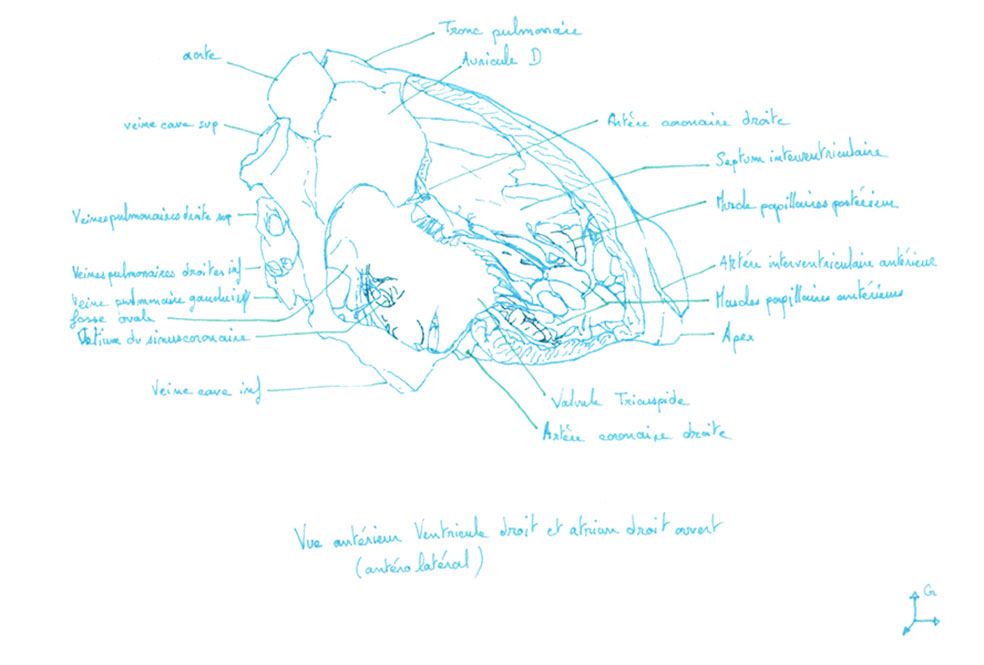 Tronc pulmonaire
aorte
Auricule D
veine cave sup
Artère coronaire droite
Septum interventriculaire
Muscle papillaires postérieur
Veines pulmonaires droite sup
Veines pulmonaires droites inf
Artère interventriculaire antérieure
Veine pulmonaire gauche inf
Muscles papillaires antérieurs
fosse ovale
Ostium du sinus coronaire
Apex
Veine cave inf
Valvule Tricuspide
Artère coronaire droite
Vue antérieur Ventricule droit et atrium droit ouvert
(antéro latéral)
G